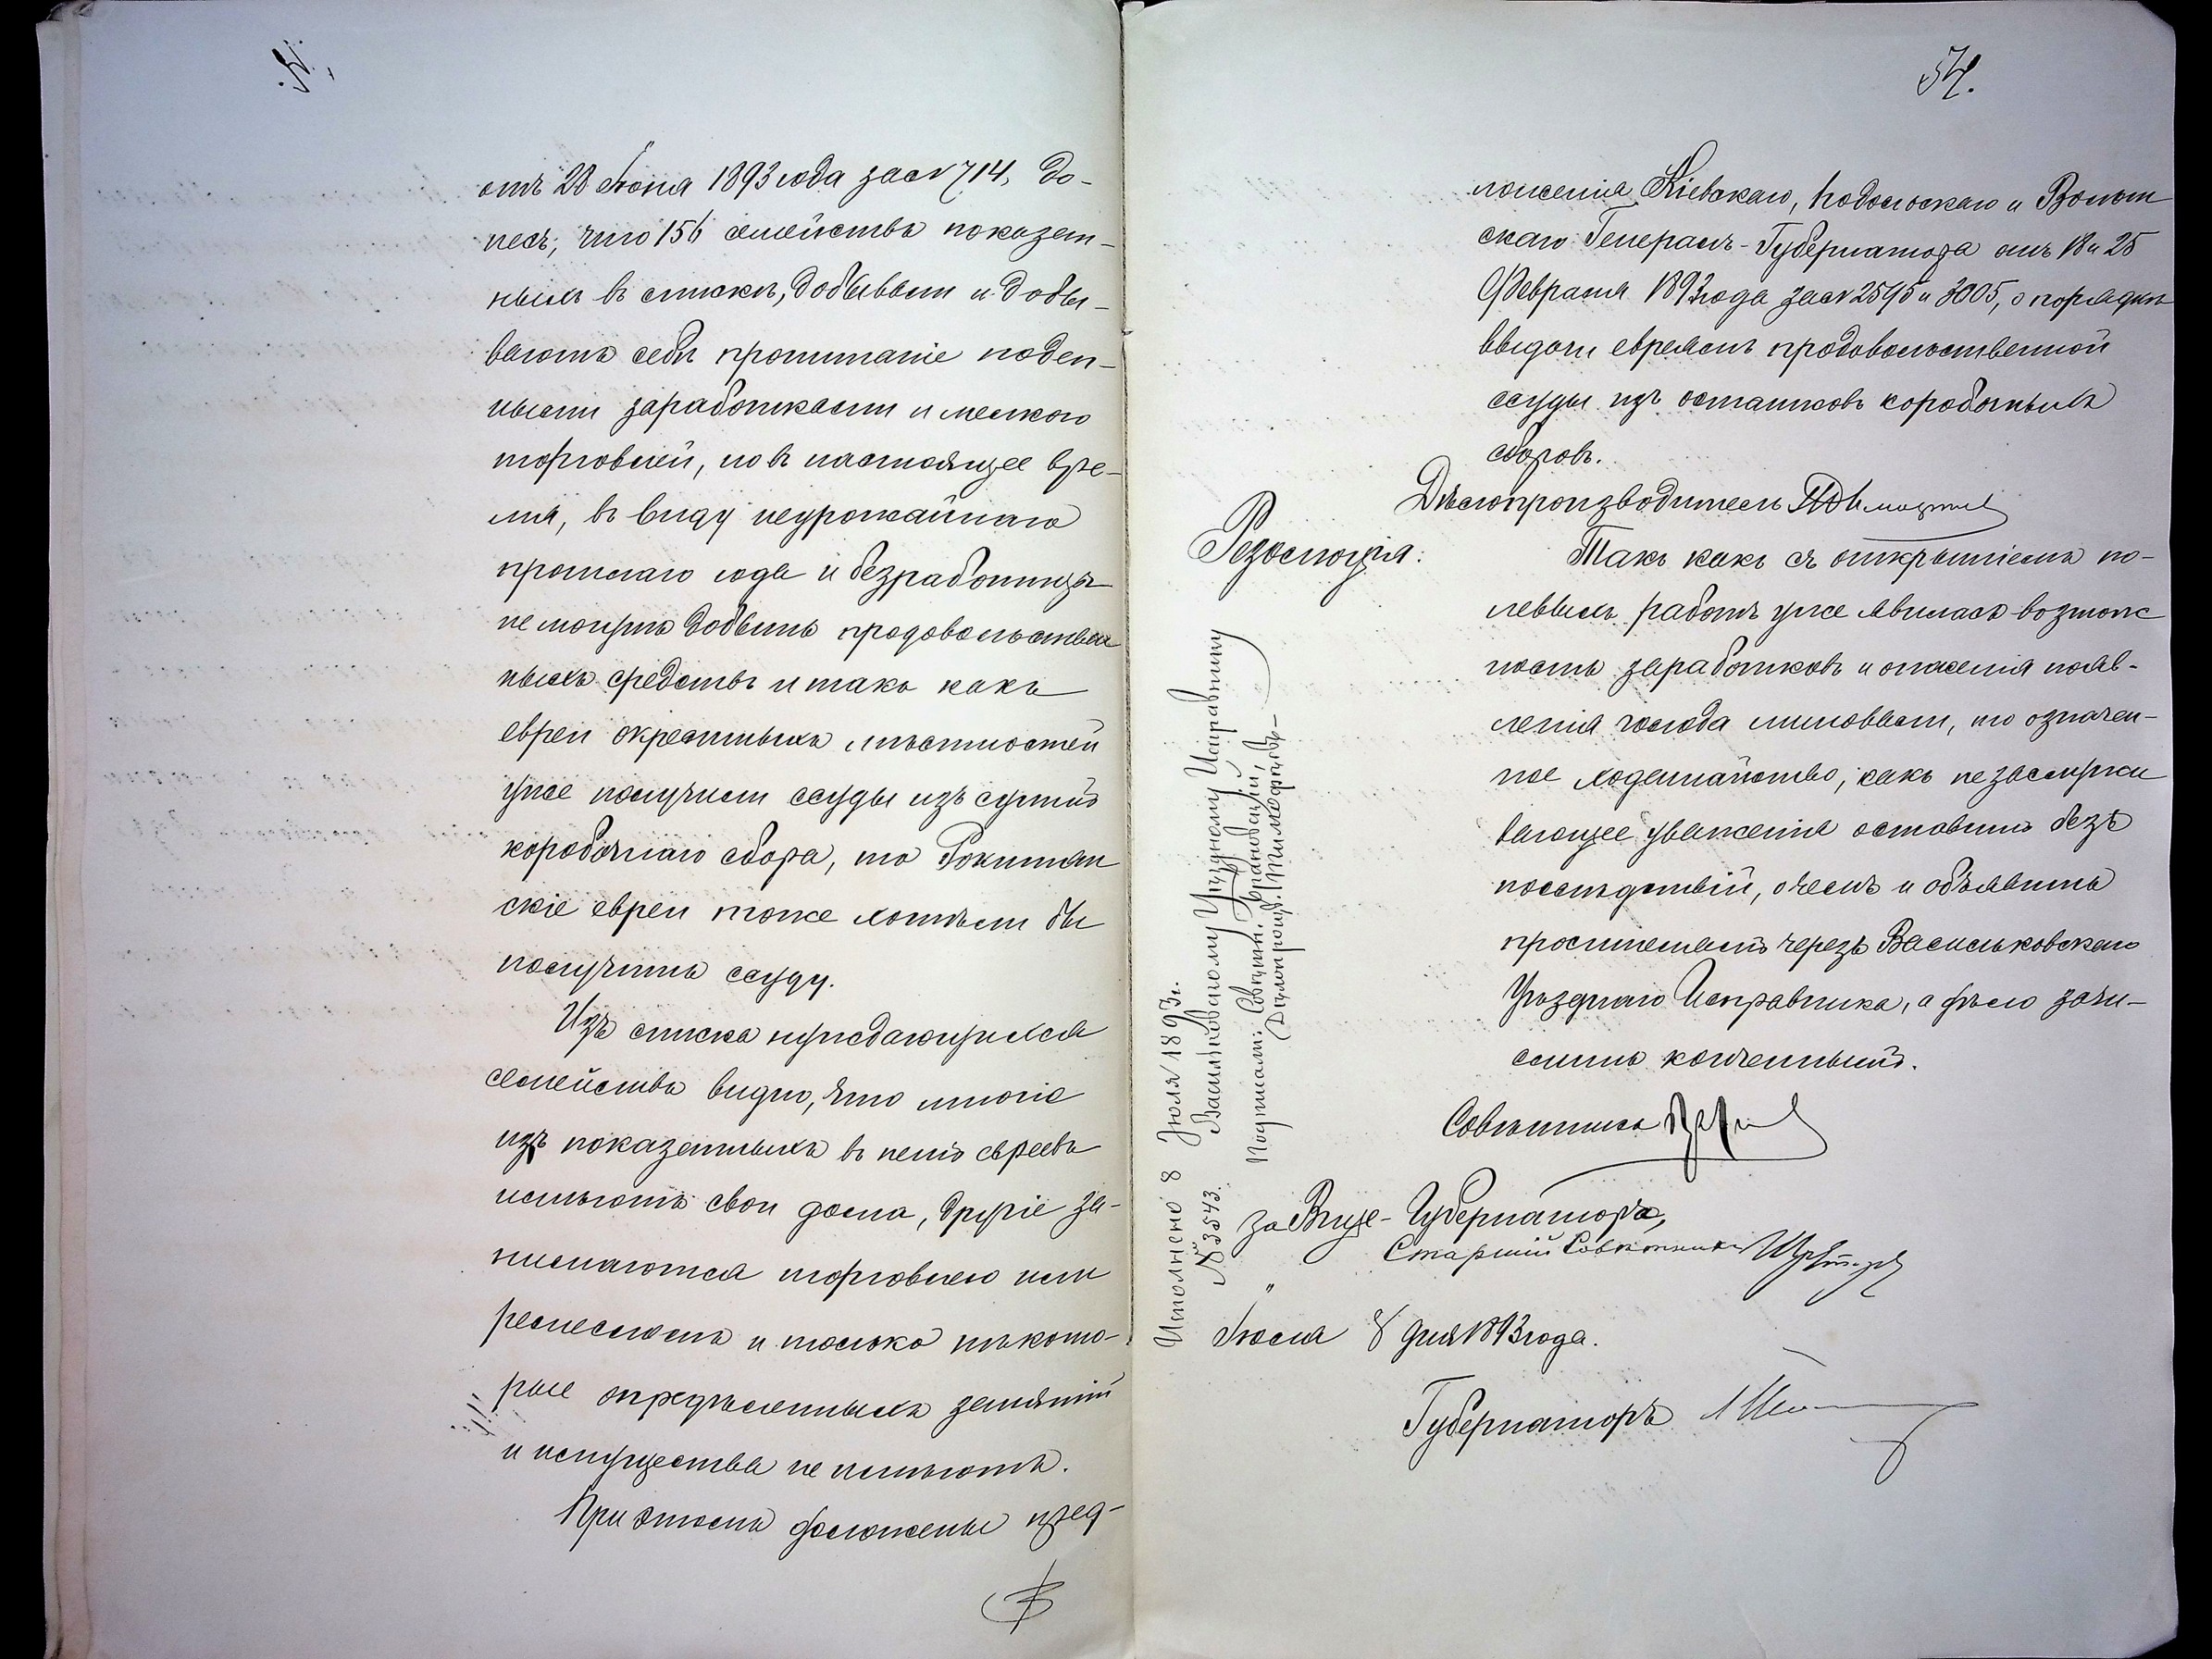 отъ 28 Іюня 1893 года за № 714, до-
несъ, что 156 семействъ показан-
ныхъ въ спискѣ, добывали и добы-
ваютъ себѣ пропитаніе поден-
ными заработками и мелкою
торговлей, но въ настоящее вре-
мя, въ виду неурожайнаго
прошлаго года и безработицы
не могутъ добыть продовольствен
ныхъ средствъ и такъ какъ
евреи окрестныхъ мѣстностей
уже получили ссуды изъ суммъ
коробочнаго сбора, то Рокитян
скіе евреи тоже хотѣли бы
получить ссуду.
Изъ списка нуждающихся
семействъ видно, что многіе
изъ показанныхъ въ немъ евреевъ
имѣютъ свои дома, другіе за-
нимаются торговлею или
ремесломъ и только нѣкото-
рые опредѣленныхъ занятій
и имущества не имѣютъ.
При этомъ доложены пред-
54.
ложенія Кіевскаго, Подольскаго и Волын
скаго Генералъ-Губернатора отъ 18 и 25
Февраля 1893 года за № 2595 и 3005, о порядкѣ
выдачи евреямъ продовольственной
ссуды изъ остатковъ коробочныхъ
сборовъ.
Дѣлопроизводитель
Резолюція:
Такъ какъ съ открытіемъ по-
левыхъ работъ уже явилась возмож
ность заработковъ и опасенія появ-
ленія голода миновали, то означен-
ное ходатайство, какъ не заслужи
вающее уваженія оставить безъ
послѣдствій, о чемъ и объявить
просителямъ черезъ Васильковскаго
Уѣзднаго Исправника, а дѣло зачи-
слить конченнымъ.
Совѣтникъ
за Вице-Губернатора,
Старшій Совѣтникъ
Іюля 8 дня 1893 года.
Губернаторъ
Исполнено 8 Іюля 1893 г.
№ 3543. Васильковскому Уѣздному Исправнику
Подписали: Совѣтн. Врановскій,
Дѣлопроизв. Тимофѣевъ